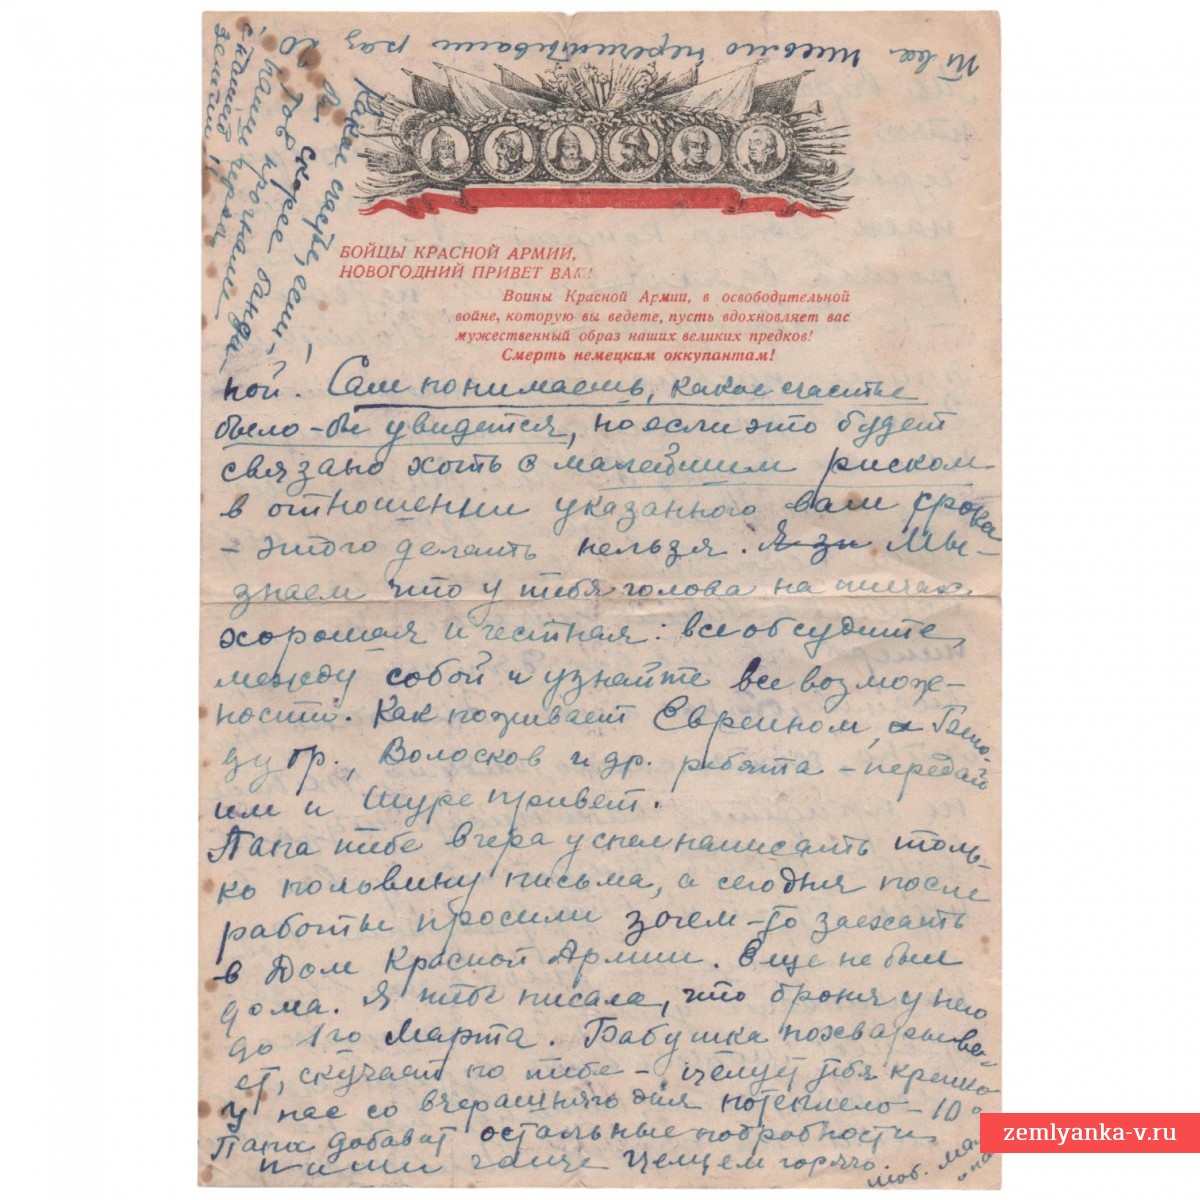 Твое письмо перечитывали раз 20
Какое счастье, если-
бы скорее банди-
Гов прогнали с
нашей
земли!!
БОЙЦЫ КРАСНОЙ АРМИИ,
НОВОГОДНИЙ ПРИВЕТ ВАМ!
Воины Красной Армии, в освободительной
войне, которую вы ведете, пусть вдохновляет вас
мужественный образ наших великих предков!
Смерть немецким оккупантам!
ной. Сам понимаешь, какое счастье
было-бы увидется, но если это будет
связано хоть с малейшим риском
в отношении указанного вам срока
– этого делать нельзя. Я зн Мы-
знаем что у тебя голова на плечах
хорошая и честная: все обсудите
между собой и узнайте все возмож-
ности. Как поживает Евреином,
др., Волосков и др. ребята – передай
им и Шуре привет.
Папа тебе вчера успел написать толь-
ко половину письма, а сегодня после
работы просили зачем-то заехать
в Дом Красной Армии. Еще не был
дома. Я тебе писала, что броня у него
до 1го Марта. Бабушка похварыва-
ет, скучает по тебе – целует тебя крепко
У нас со вчерашнего дня потеплело – 10°
Папа добавит остальные подробности
пиши чаще Целуем горячо.
люб. Мама
папа
zemlyanka-v.ru